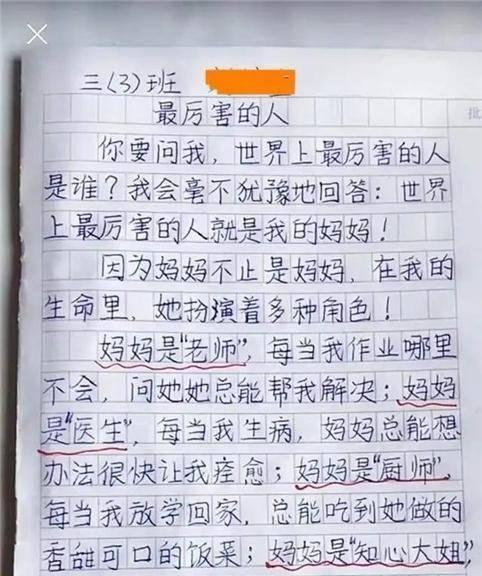 三(3)班
最厉害的人
你要问我，世界上最厉害的人
是谁？我会毫不犹豫地回答：世界
上最厉害的人就是我的妈妈！
因为妈妈不止是妈妈，在我的
生命里，她扮演着多种角色！
妈妈是“老师”，每当我作业哪里
不会，问她她总能帮我解决；妈妈
是“医生”，每当我生病，妈妈总能想
办法很快让我痊愈；妈妈是“厨师”，
每当我放学回家，总能吃到她做的
香甜可口的饭菜；妈妈是“知心大姐”，